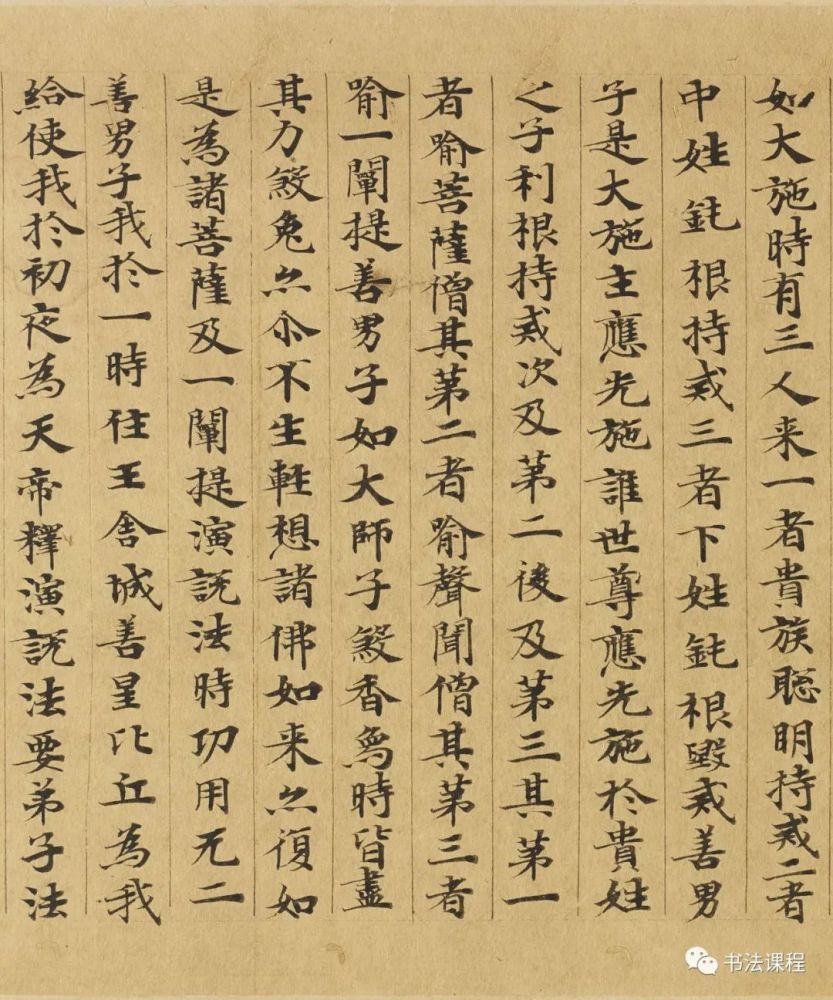 如大施時有三人来一者貴族聡明持戒二者
中姓鈍根持戒三者下姓鈍根毀戒善男
子是大施主應先施誰世尊應先施於貴姓
之子利根持戒次及第二後及第三其第一
者喻菩薩僧其第二者喻聲聞僧其第三者
喻一闡提善男子如大師子煞香烏時皆盡
其力煞兔亦尒不生輕想諸佛如来亦復如
是為諸菩薩及一闡提演說法時功用无二
善男子我於一時住王舍城善星比丘為我
給使我於初夜為天帝釋演說法要弟子法
书法课程